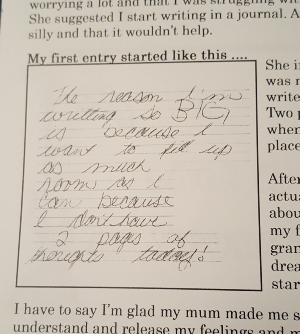 worrying a lot and that I was struggling wi
She suggested I start writing in a journal. A
silly and that it wouldn't help.
My first entry started like this ....
The reason I'm
writing so BIG
is because I
want to fill up
as much
room as I
can because
I don't have
2 pages of
thoughts today!
She i
was r
write
Two p
when
place
After
actu
abou
my f
gran
drea
star
I have to say I'm glad my mum made me s
understand and release my feelings and m